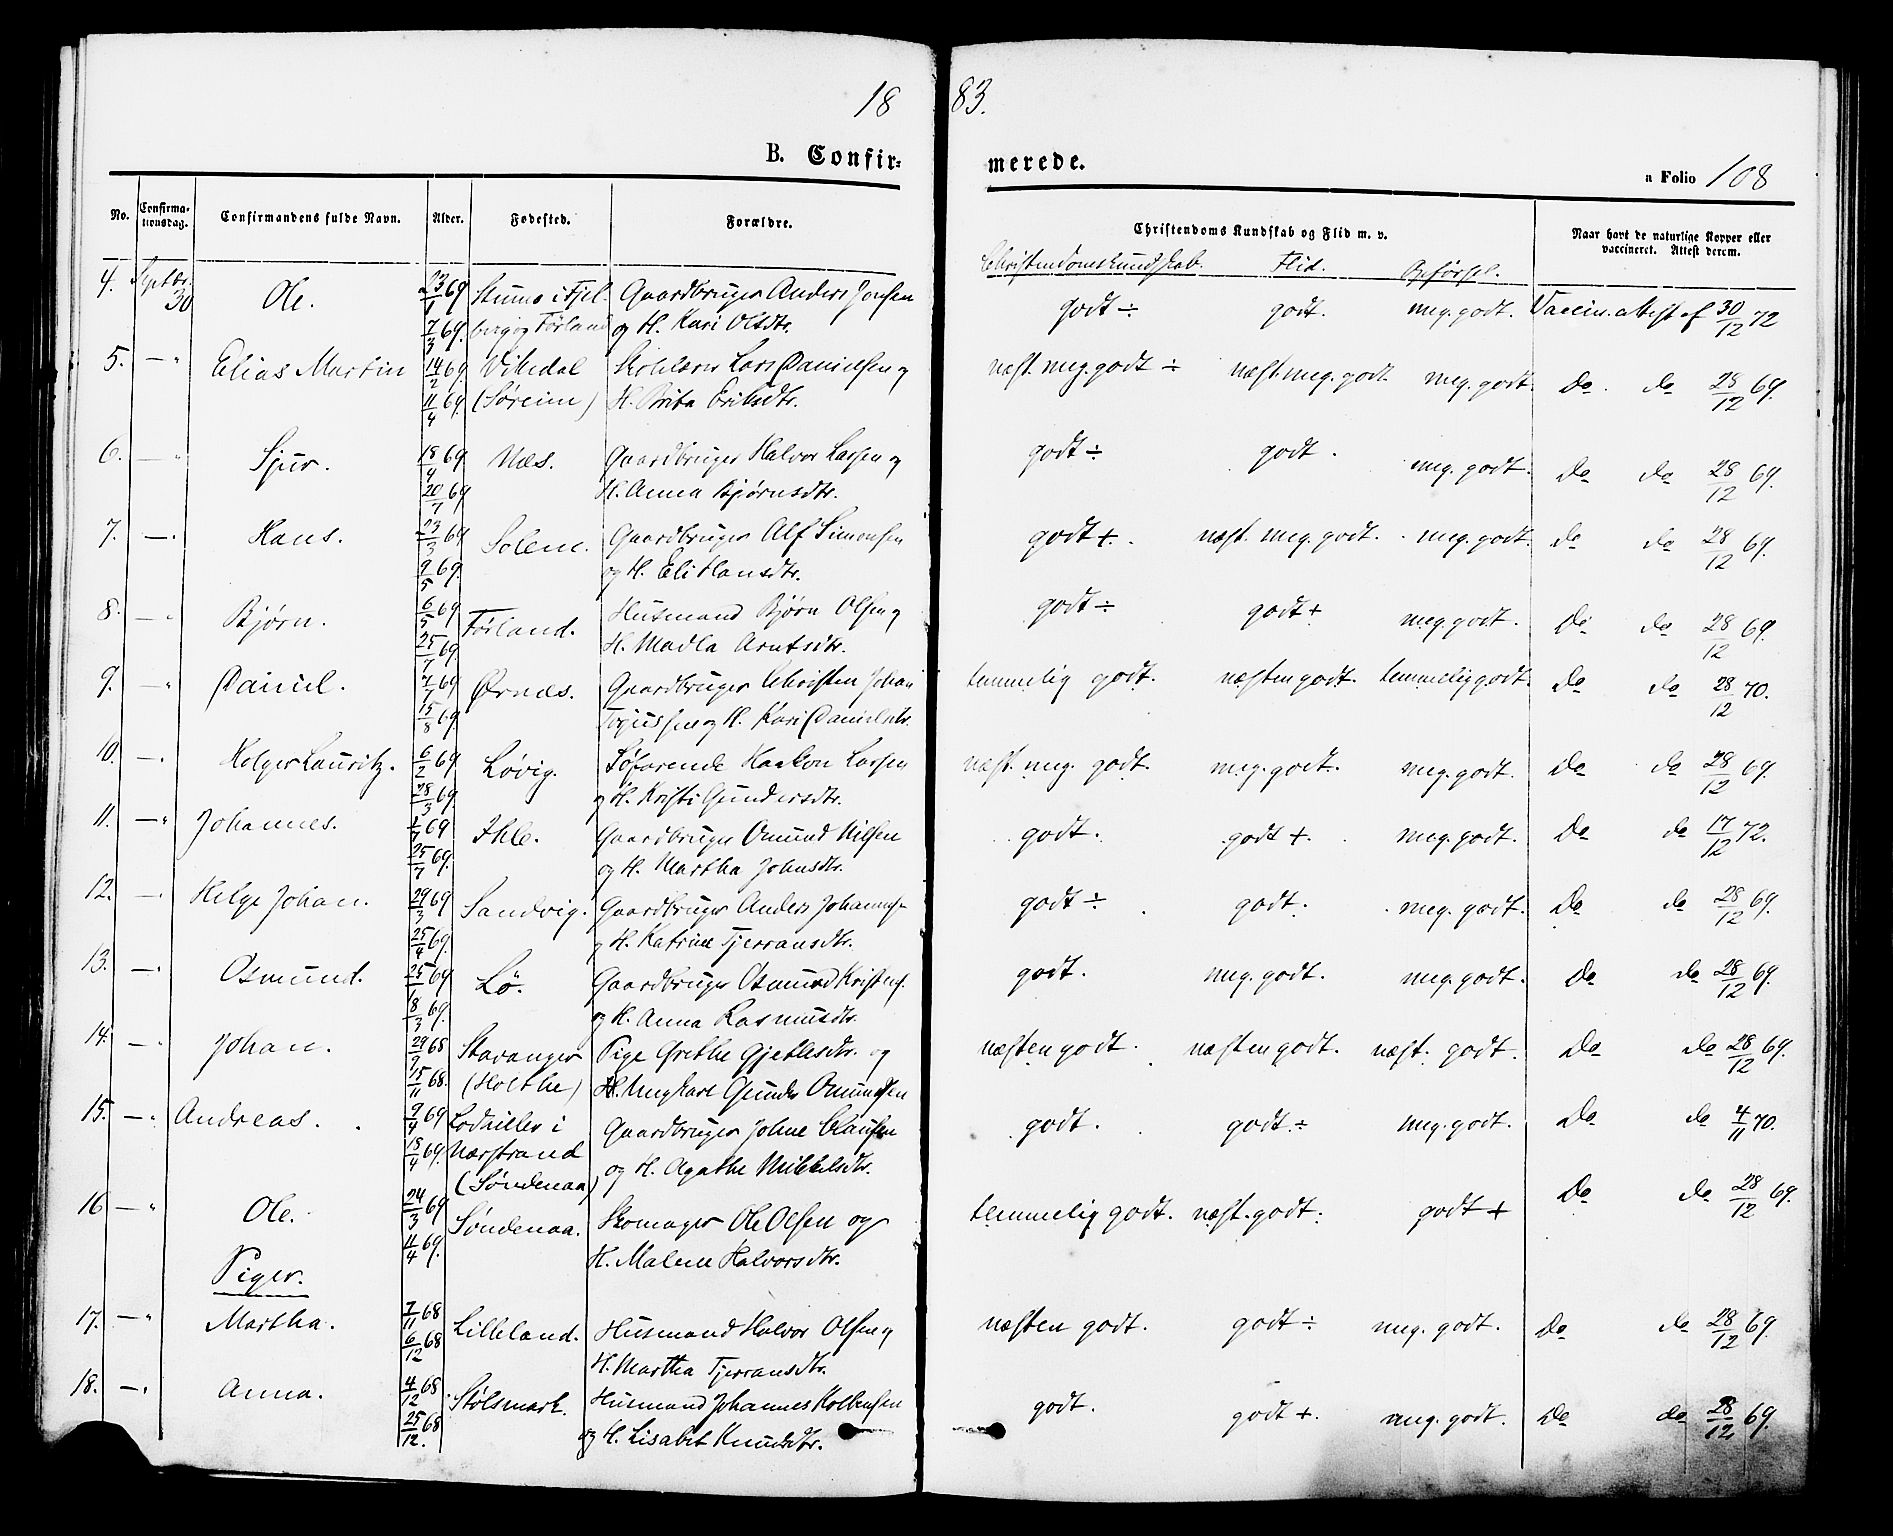 18 83.
B. Confir- merede.
a Folio 108
No. Confirma-tionsdag. Confirmandens fulde Navn. Alder. Fødested. Forældre. Christendoms Kundskab og Flid m. v. Naar havt de naturlige Kopper eller vaccineret. Attest derom.
Christendomskundskab. Flid. Opførsel.
4. Septbr. 30 Ole. 23/1 69 i Fjel- Gaardbruger Anders Jonsen godt ÷ godt. meg. godt. Vaccin. attest af 30/12 72
7/3 69. berg og Førland og H. Kari Olsdtr.
5. — " Elias Martin 14/2 69. Vikedal Skolelærer Lars Danielsen og næst. meg. godt ÷ næst. meg. godt meg. godt. Do. do 28/12 69.
11/4 69. (Søreim) H. Brita Eriksdtr.
6. — " Sjur. 18/4 69 Næs. Gaardbruger Halvor Larsen og godt ÷ godt. meg. godt. Do do 28/12 69.
20/7 69 H. Anna Bjørnsdtr.
7. — " Hans. 23/3 69 Solem. Gaardbruger Alf Simonsen godt +. næst. meg. godt. meg. godt. do do 28/12 69.
9/5 69. og H. Eli Hansdtr.
8. — " Bjørn. 6/5 69 Førland. Husmand Bjørn Olsen og godt ÷ godt + meg. godt. Do do 28/12 69.
25/7 69. H. Madla Arntsdtr.
9. — " Daniel. 7/7 69 Ørnæs. Gaardbruger Christen Johan temmelig godt. næsten godt. temmelig godt. Do do 28/12 70.
15/8 69. og H. Kari Danielsdtr.
10. — " Holger Lauritz. 6/2 69 Løvig. Søfarende Haakon Larsen næst. meg. godt. meg. godt. meg. godt. Do do 28/12 69.
28/3 69. og H. Kristi Gundersdtr.
11. — " Johannes. 2/7 69 Ihle. Gaardbruger Omund Nilsen godt. godt +. meg. godt. Do do 17/12 72.
25/7 69. og H. Martha Johnsdtr.
12. — " Helge Johan. 29/3 69 Sandvig. Gaardbruger Anders Johanness. godt ÷ godt. meg. godt. Do do 28/12 69.
25/4 69. og H. Katrine Tjerransdtr.
13. — " Osmund. 25/1 69 Lø. Gaardbruger Osmund Kristens. godt. meg. godt. meg. godt. Do do 28/12 69.
8/3 69. og H. Anna Rasmusdtr.
14. — " Johan. 29/9 68 Stavanger Pige Grethe Gjertlesdtr. og næsten godt. næsten godt. næst. godt. Do do 28/12 69.
15/11 68. (Holthe) Ungkarl Gunder Omundsen
15. — " Andreas. 9/4 69 i Gaardbruger Johne Clausen godt. godt ÷ meg. godt. Do do 4/11 70.
18/4 69. Nærstrand og H. Agathe Mikkelsdtr.
(Søndenaa)
16 — " Ole. 24/3 69 Søndenaa. Skomager Ole Olsen og temmelig godt. næst. godt. godt + Do do 28/12 69.
11/4 69. H. Malene Halvorsdtr.
Piger.
17. — " Martha. 7/11 68 Lilleland. Husmand Halvor Olsen og næsten godt. godt ÷ meg. godt. Do do 28/12 69.
6/12 68 H. Martha Tjerransdtr.
18. — " Anna. 4/12 68. Stølsmark. Husmand Johannes Kolbensen godt. godt +. meg. godt. Do do 28/12 69.
25/12. 68 og H. Lisabet Knudsdtr.